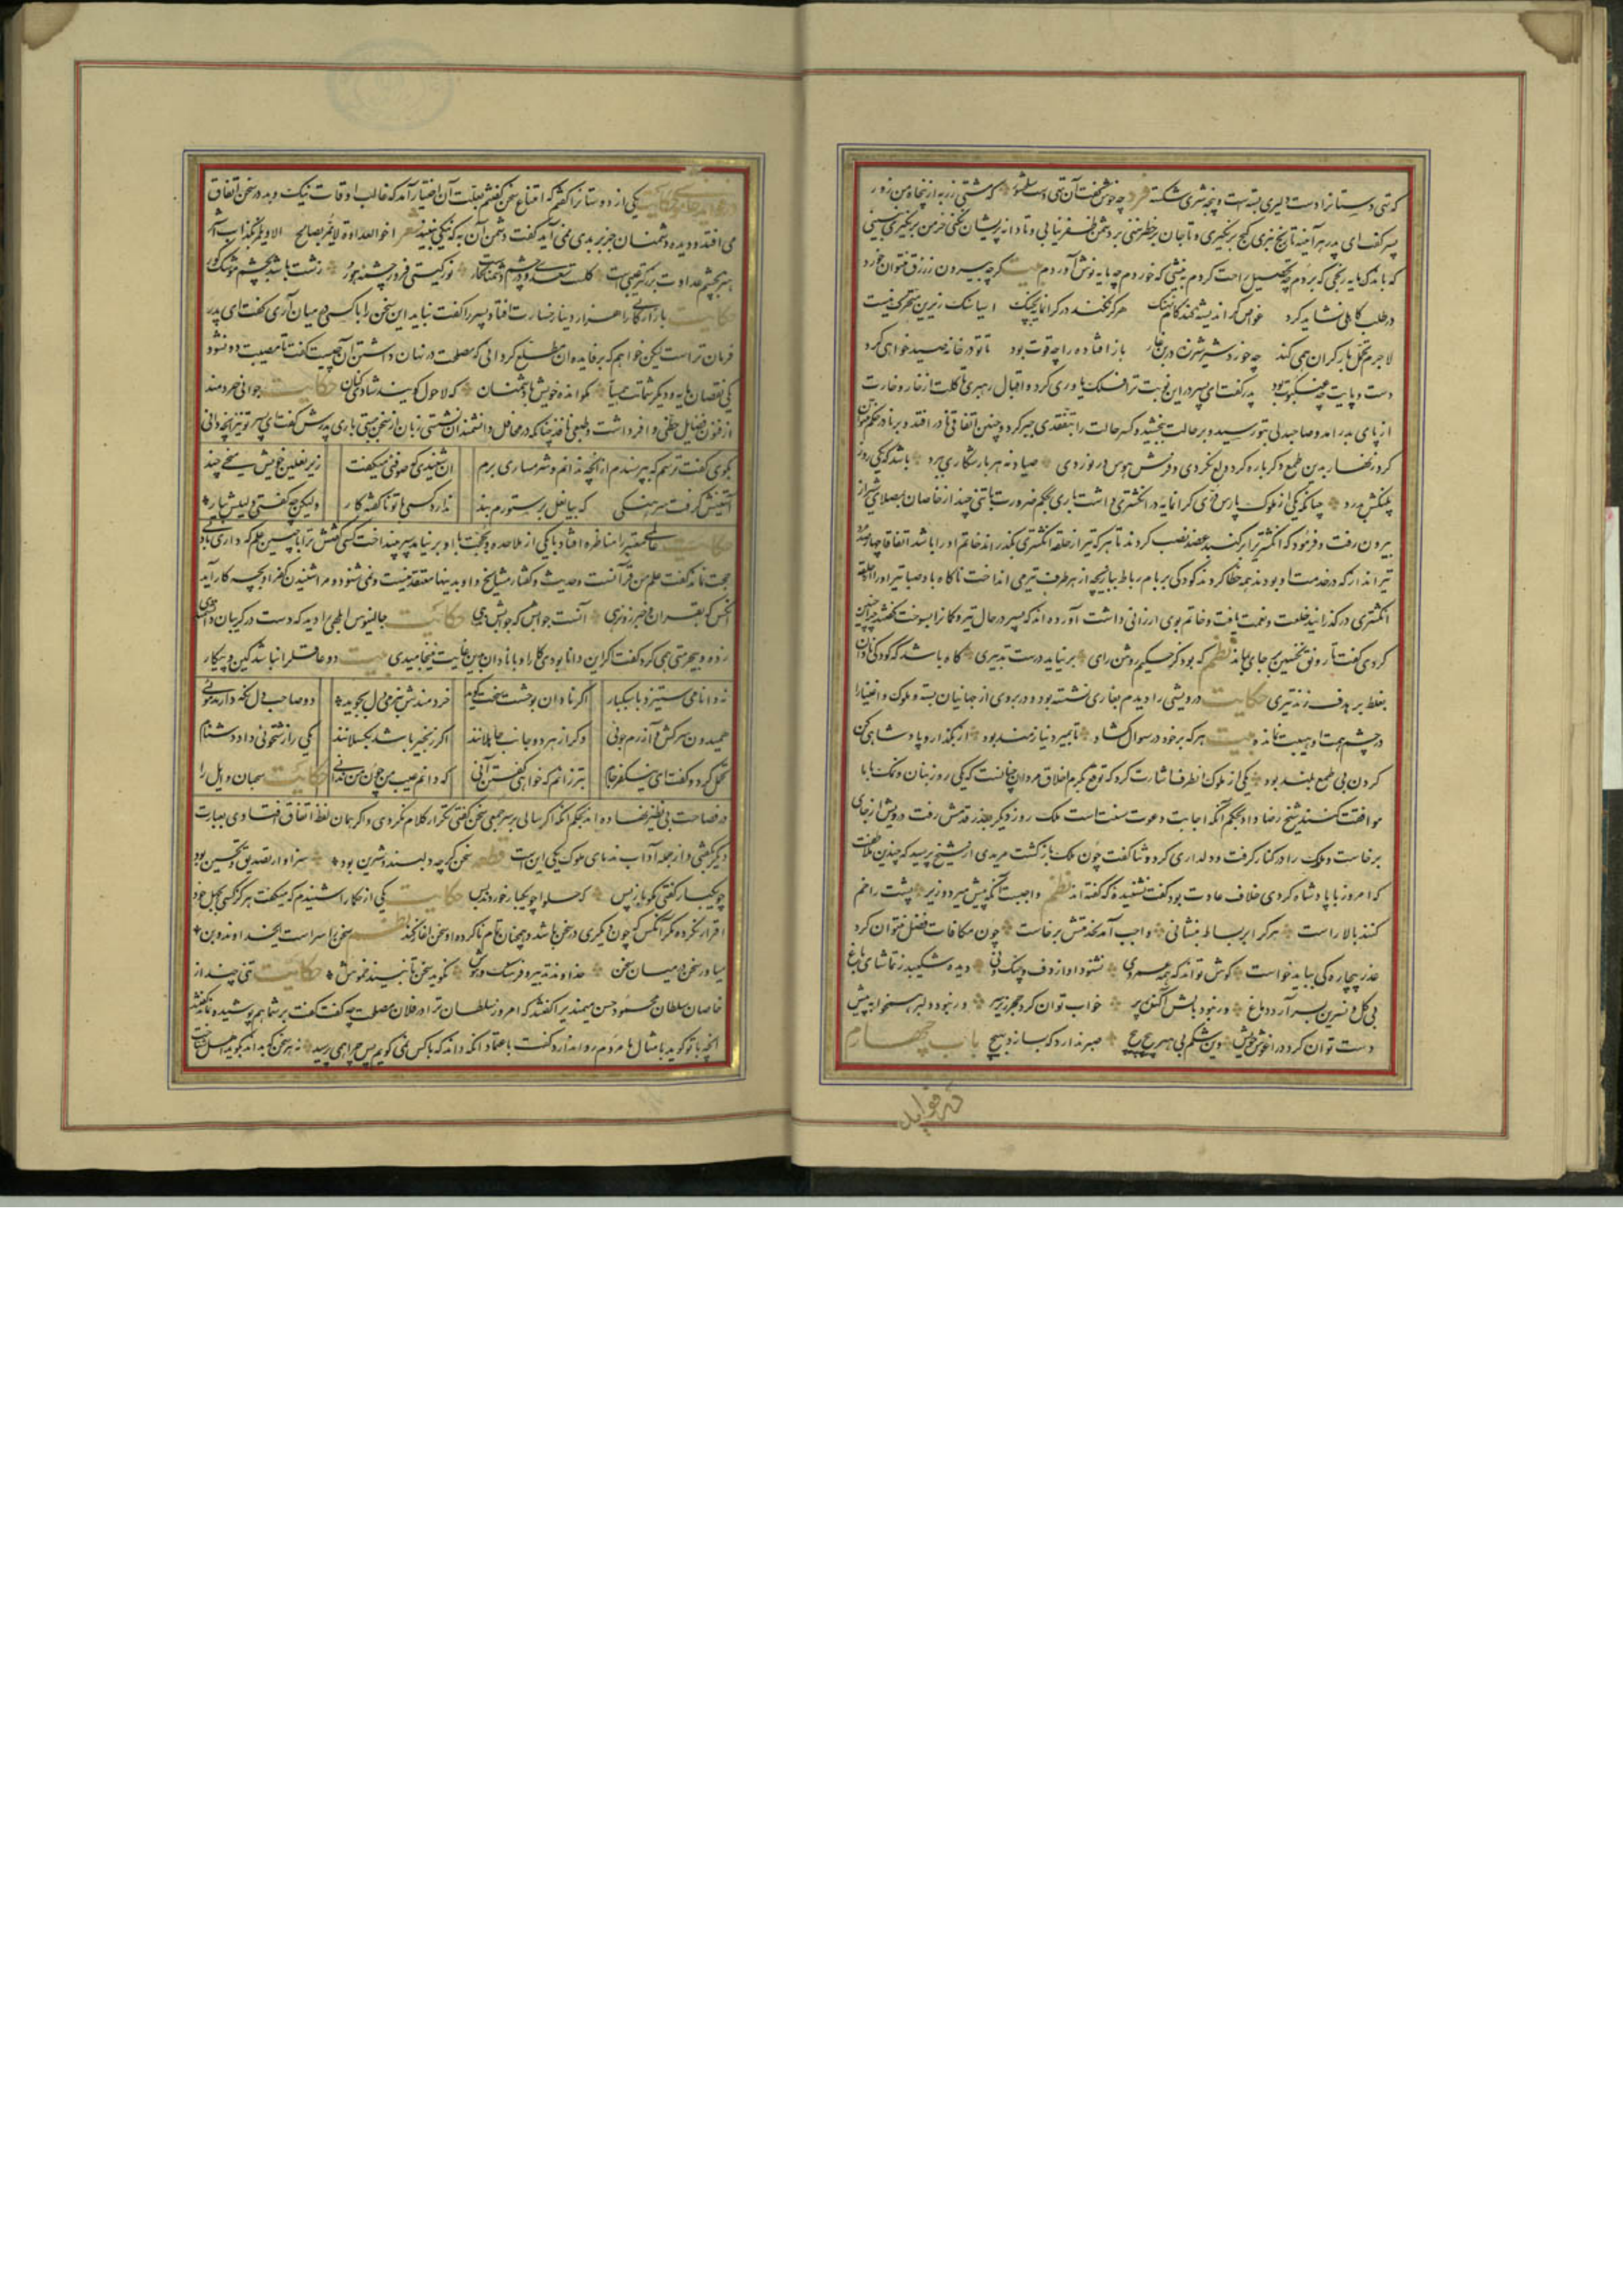 که تهی دستانرا دست دلیری بسته است و پنجه شیری شکسته فرد چه خوش گفت آن تهی دست سلحشور که مشتی زر به از پنجاه من زور
پسر گفت ای پدر هر آینه تا رنج نبری گنج برنگیری و تا جان بر خطر ننهی بر دشمن ظفر نیابی و تا دانه پریشان نکنی خرمن برنگیری نبینی
که باندک مایه رنجی که بردم چه تحصیل راحت کردم به نیشی که خوردم چه مایه نوش آوردم بیت گرچه بیرون ز رزق نتوان خورد
در طلب کاهلی نشاید کرد غواص گر اندیشه کند کام نهنگ هرگز نکند در گرانمایه بچنگ آسیا سنگ زیرین متحرک نیست
لاجرم تحمل بار گران همی کند چه خورد شیر شرزه در بن غار باز افتاده را چه قوت بود تا تو در خانه صید خواهی کرد
دست و پایت چو عنکبوت بود پدر گفت ای پسر درین نوبت ترا فلک یاوری کرد و اقبال رهبری تا گلت از خار و خارت
از پای بدر آمد و صاحبدلی بتو رسید و بر حالت ببخشید و کسر حالت را بتفقدی جبر کرد و چنین اتفاق نادر افتد و بر نادر حکم نتوان
کرد زنهار بدین طمع دگر باره گرد ولع نگردی و فرش هوس در نوردی صیاد نه هر بار شکاری ببرد باشد که یکی روز
پلنگش بدرد چنانکه یکی از ملوک پارس نگینی گرانمایه در انگشتری داشت باری بحکم ضرورت با تنی چند از خاصان بمصلای شیراز
بیرون رفت و فرمود که انگشتریرا بر گنبد عضد نصب کردند تا هر که تیر از حلقه انگشتری بگذراند خاتم او را باشد اتفاقا چهارصد
تیر انداز که در خدمت او بودند همه خطا کردند کودکی بر بام رباط ببازیچه از هر طرف تیر می انداخت ناگاه باد صبا تیر او را از حلقه
انگشتری در گذرانید خلعت و نعمت یافت و خاتم بوی ارزانی داشت آورده اند که پسر در حال تیر و کمانرا بسوخت گفتند چرا چنین
کردی گفت تا رونق نخستین بر جای بماند نظم که بود کز حکیم روشن رای بر نیاید درست تدبیری گاه باشد که کودکی نادان
بغلط بر هدف زند تیری حکایت درویشی را دیدم بغاری نشسته بود و در بروی از جهانیان بسته و ملوک و اغنیارا
در چشم همت او هیبت نمانده بیت هر که بر خود در سوال گشاد تا بمیرد نیازمند بود از بگذار و پادشاهی کن
گردن بی طمع بلند بود یکی از ملوک انطرف اشارت کرد که توقع بکرم اخلاق مردان چنانست که یکی روز بنان و نمک با ما
موافقت کنند شیخ رضا داد بحکم آنکه اجابت دعوت سنت است ملک روز دیگر بعذر قدمش رفت درویش از جای
برخاست و ملک را در کنار گرفت و دلداری کرد و ثنا گفت چون ملک بازگشت مریدی از شیخ پرسید که چندین ملاطفت
که امروز با پادشاه کردی خلاف عادت بود گفت نشنیده که گفته اند نظم واجبست آنکه پیش میر و وزیر پشت را خم
کنند بالا راست هر کرا بر بساط بنشانی واجب آمد بخدمتش برخاست چون مکافات فضل نتوان کرد
عذر بیچاره گی بباید خواست گوش تواند که همه عمر وی نشنود آواز دف و چنگ و نی دیده شکیبد ز تماشای باغ
بی گل و نسرین بسر آرد دماغ ور نبود بالش آگنده پر خواب توان کرد حجر زیر سر ور نبود دلبر همخوابه پیش
دست توان کرد در آغوش خویش وین شکم بی هنر پیچ پیچ صبر ندارد که بسازد بهیچ باب چهارم
در فواید
در فواید خاموشی حکایت یکی از دوستانرا گفتم که امتناع سخن گفتنم بعلت آن اختیار آمد که غالب اوقات نیک و بد در سخن اتفاق
می افتد و دیده دشمنان جز بر بدی نمی آید گفت دشمن آن به که نیکی نبیند شعر اخو العداوة لا یمر بصالح الا و یلمزه بکذاب اشر
هنر بچشم عداوت بزرگتر عیبست گلست سعدی و در چشم دشمنان خارست نور گیتی فروز چشمه هور زشت باشد بچشم موشک کور
حکایت بازرگانی را هزار دینار خسارت افتاد پسر را گفت نباید این سخن را با کسی در میان آری گفت ای پدر
فرمان تراست لیکن خواهم که بر فایده ان مطلع گردانی که مصلحت در نهان داشتن آن چیست گفت تا مصیبت دو نشود
یکی نقصان مایه و دیگر شماتت همسایه مگو انده خویش با دشمنان که لاحول گویند شادی کنان حکایت جوانی خردمند
از فنون فضایل حظی وافر داشت و طبعی نافذ چنانکه در محافل دانشمندان نشستی زبان از سخن ببستی باری پدرش گفت ای پسر تو نیز آنچه دانی
بگوی گفت ترسم که بپرسندم از آنچه ندانم و شرمساری برم ان شنیدی که صوفی میکفت زیر نعلین خویش میخی چند
آستینش گرفت سرهنگی که بیا نعل بر ستورم بند ندارد کسی با تو ناگفته کار ولیکن چو گفتی دلیلش بیار
حکایت عالمی معتبر را مناظره افتاد با یکی از ملاحده و بحجت با او بر نیامد سپر بینداخت کسی گفتش ترا با چنین علم که داری با بی دینی
حجت نماند گفت علم من قرآنست و حدیث و گفتار مشایخ و او بدینها معتقد نیست و نمی شنود و مرا شنیدن کفر او بچه کار آید
آنکس که بقرآن و خبر زو نرهی آنست جوابش که جوابش ندهی حکایت جالینوس ابلهی را دید که دست در گریبان دانشمندی
زده و بیحرمتی همی کرد گفت اگر این دانا بودی کار او با نادان بدین غایت نینجامیدی بیت دو عاقلرا نباشد کین و پیکار
نه دانا می ستیزد با سبکبار اگر نادان بوحشت سخت گوید خردمندش بنرمی دل بجوید دو صاحب دل نگه دارند موئی
همیدون سرکشی و آزرم جوئی وگر از هر دو جانب جاهلانند اگر زنجیر باشد بگسلانند یکی را زشتخوئی داد دشنام
تحمل کرد و گفت ای نیک فرجام بتر زانم که خواهی گفتن آنی که دانم عیب من چون من ندانی حکایت سحبان وایل را
در فصاحت بی نظیر نهاده اند بحکم آنکه اگر سالی بر سر جمعی سخن گفتی تکرار کلام نکردی و اگر همان لفظ اتفاق افتادی بعبارت
دیگر گفتی و از جمله آداب ندمای ملوک یکی این است قطعه سخن گرچه دلبند و شیرین بود سزاوار تصدیق و تحسین بود
چو یکبار گفتی مگو باز پس که حلوا چو یکبار خوردند بس حکایت یکی از حکما را شنیدم که میکفت هرگز کسی بجهل خود
اقرار نکرده مگر آنکس که چون دیگری در سخن باشد و همچنان تمام ناکرده او سخن آغاز کند نظم سخن را سر است ای خداوند و بن
میاور سخن در میان سخن خداوند تدبیر و فرهنگ و هوش نگوید سخن تا نبیند خموش حکایت تنی چند از
خاصان سلطان محمود حسن میمندیرا گفتند که امروز سلطان ترا در فلان مصلحت چه گفت گفت بر شما هم پوشیده نماند گفتند
آنچه با تو گوید با مثال ما مردم روا ندارد گفت باعتماد آنکه داند که با کس نمی گویم پس چرا همی پرسید نه هر سخن که بداند بگوید اهل شناخت